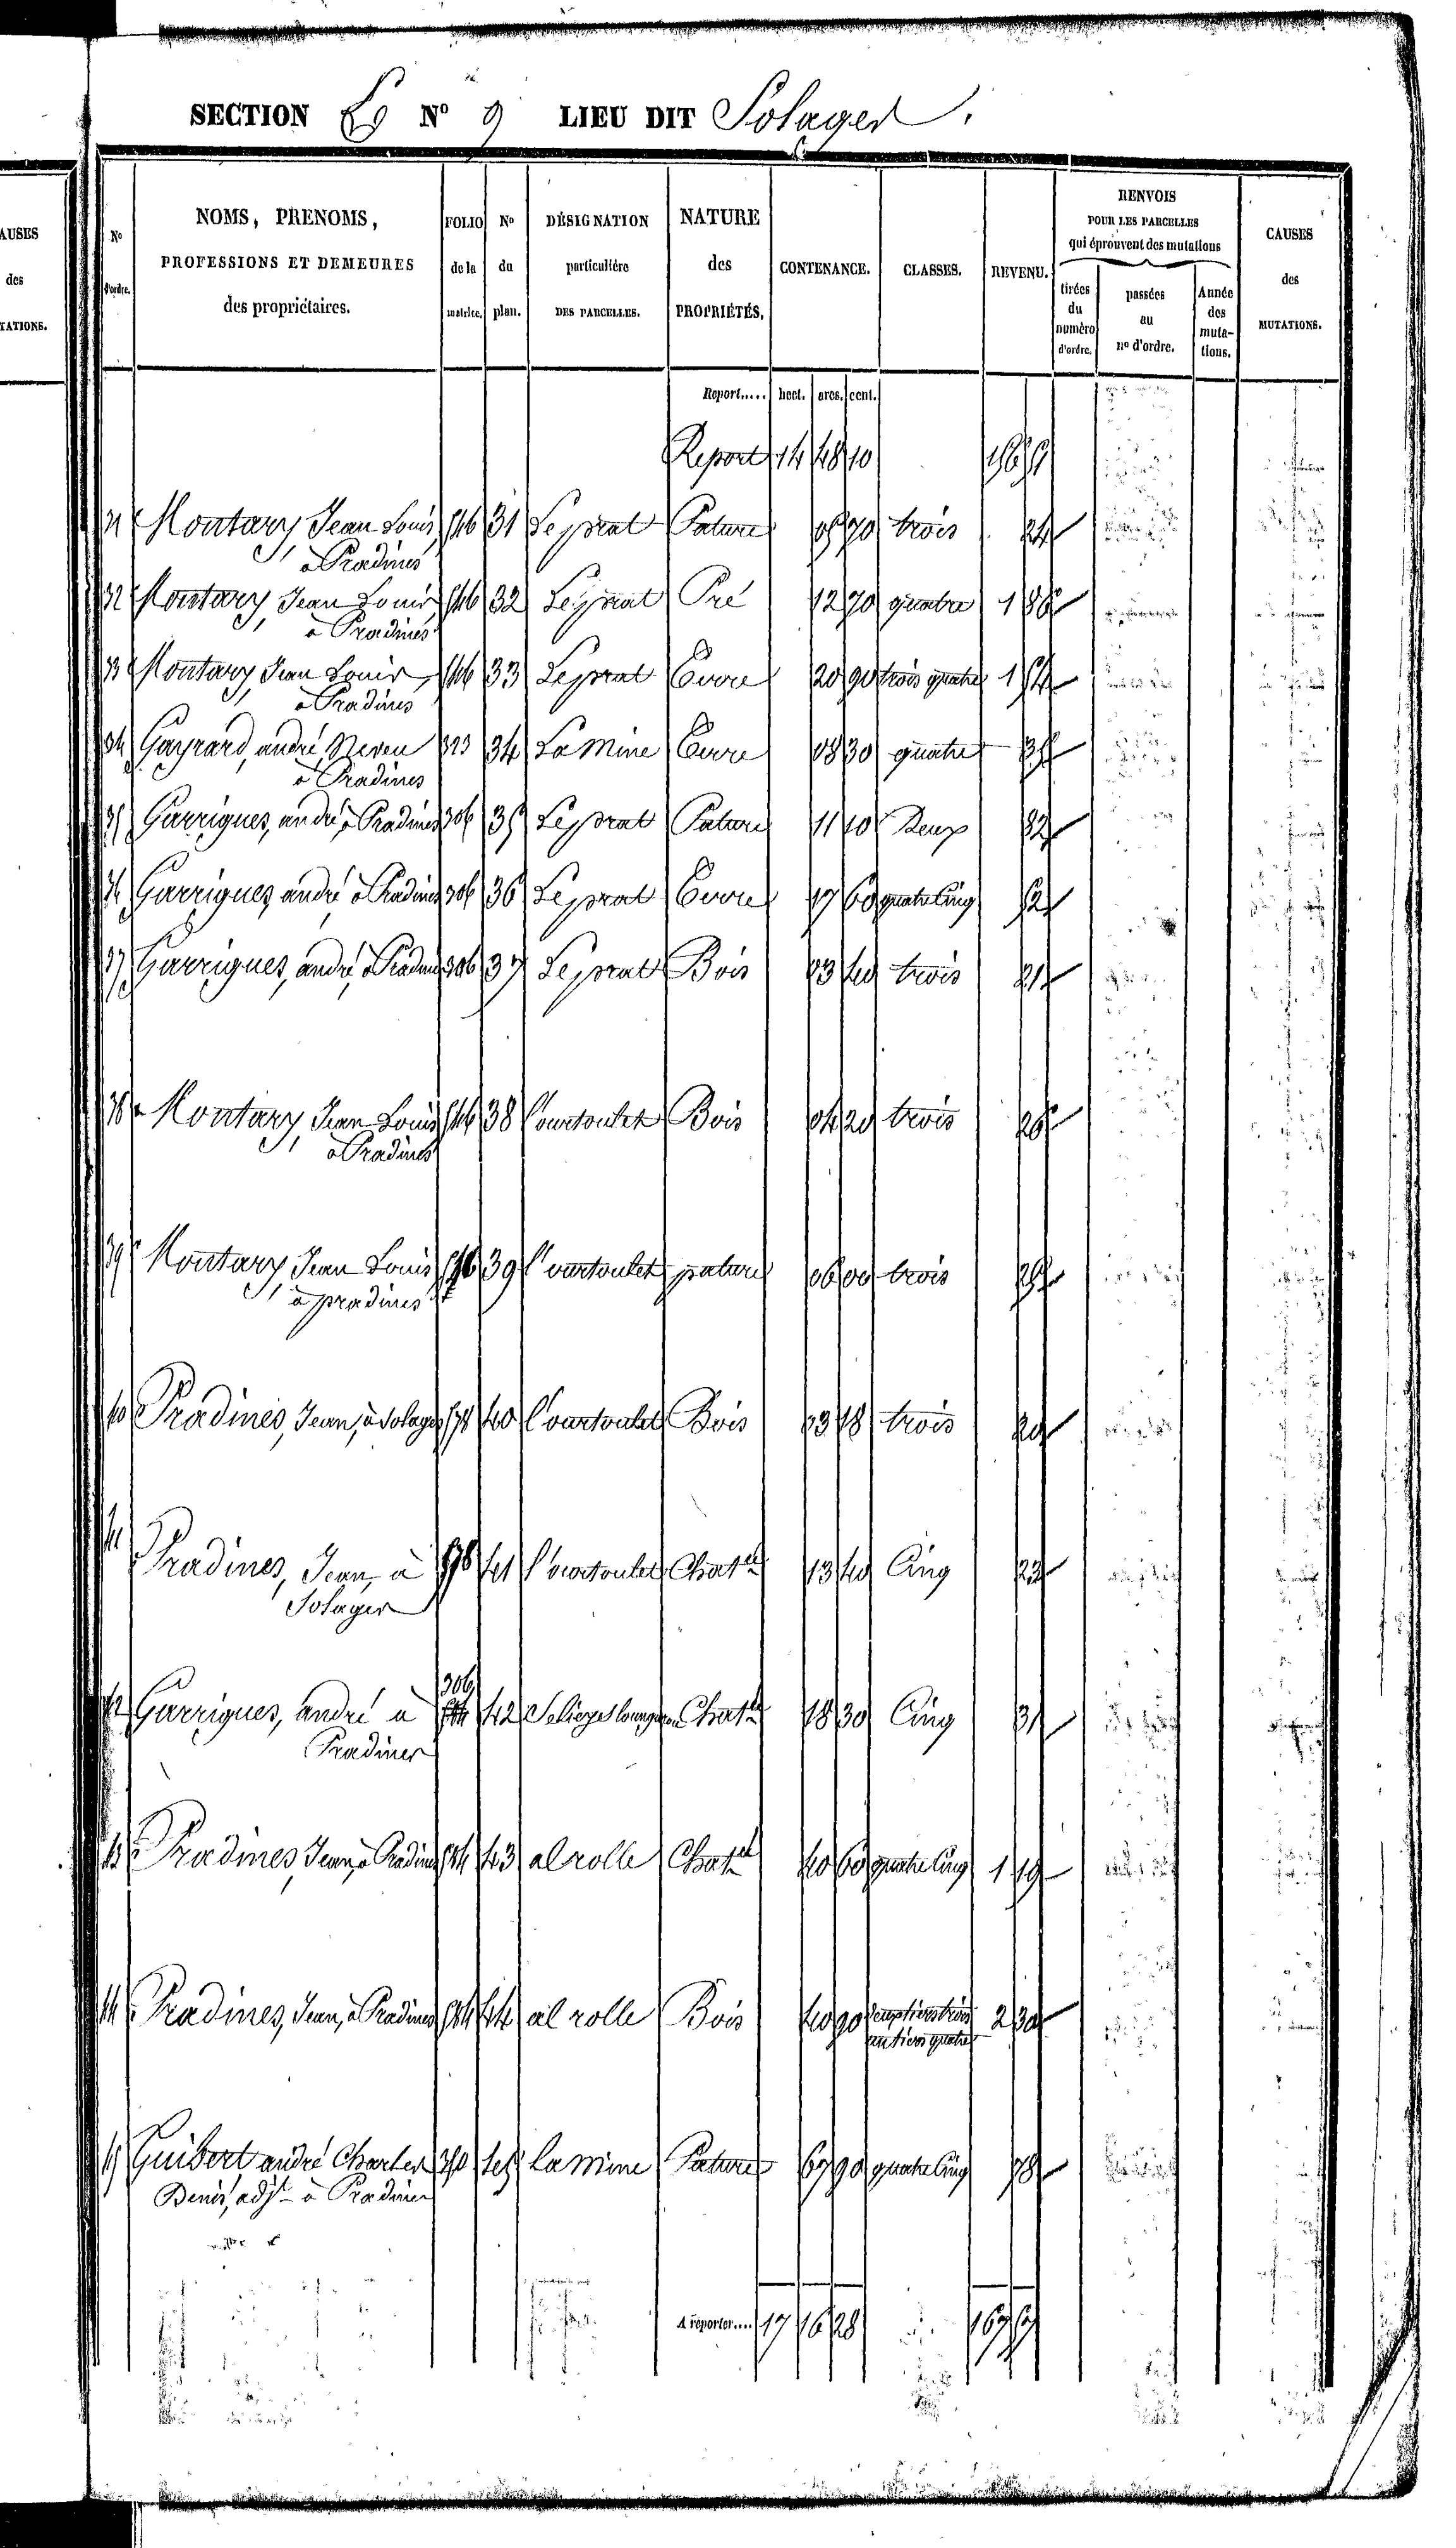 SECTION N° 9 LIEU DIT Solages.
AUSES
des
TATIONS.
N° d'ordre.
NOMS, PRENOMS,
PROFESSIONS ET DEMEURES
des propriétaires.
FOLIO de la matrice.
N° du plan.
DÉSIGNATION
particulière
DES PARCELLES.
NATURE
des
PROPRIÉTÉS.
CONTENANCE.
CLASSES.
REVENU.
RENVOIS
POUR LES PARCELLES
qui éprouvent des mutations
tirées du numéro d'ordre.
passées au n° d'ordre.
Année des mutations.
CAUSES
des
MUTATIONS.
Report..... hect. ares. cent.
Report 14 48 10
31 Montary Jean Louis 546 31 Le prat Pature 05 70 trois 24
à Pradines
32 Montary, Jean Louis 546 32 Le prat Pré 12 70 quatre 1 86
à Pradines
33 Montary Jean Louis, 546 33 Le prat Terre 20 90 trois quatre 1
à Pradines
34 Gayrard, andré, Neveu 323 34 La Mine Terre 08 30 quatre
à Pradines
35 Garrigues, andré, à Pradines 306 35 Le prat Pature 11 10 Deux 32
36 Garrigues, andré à Pradines 306 36 Le prat Terre 17 60 quatre Cinq 52
37 Garrigues, andré, à Pradines 306 37 Le prat Bois 03 40 trois 21
38 Montary, Jean Louis 546 38 Bois 04 20 trois 26
à Pradines
39 Montary Jean Louis 546 39 pature 06 00 trois
à pradines
40 Pradines, Jean, à Solages 578 40 Bois 03 18 trois 20
41 Pradines, Jean, à 578 41 Chat 13 40 Cinq 23
Solages
306
42 Garrigues, andré à 42 Chat 18 30 Cinq 31
Pradines
43 Pradines, Jean, à Pradines 584 43 al rolle Chat 40 60 quatre Cinq 1 19
44 Pradines, Jean, à Pradines 584 44 al rolle Bois 40 90 deux tiers trois 2 30
un tiers quatre
45 Guibert andré Charles 45 La mine Pature 67 90 quatre Cinq 78
Denis, adjt à Pradines
A reporter.... 17 16 28 167